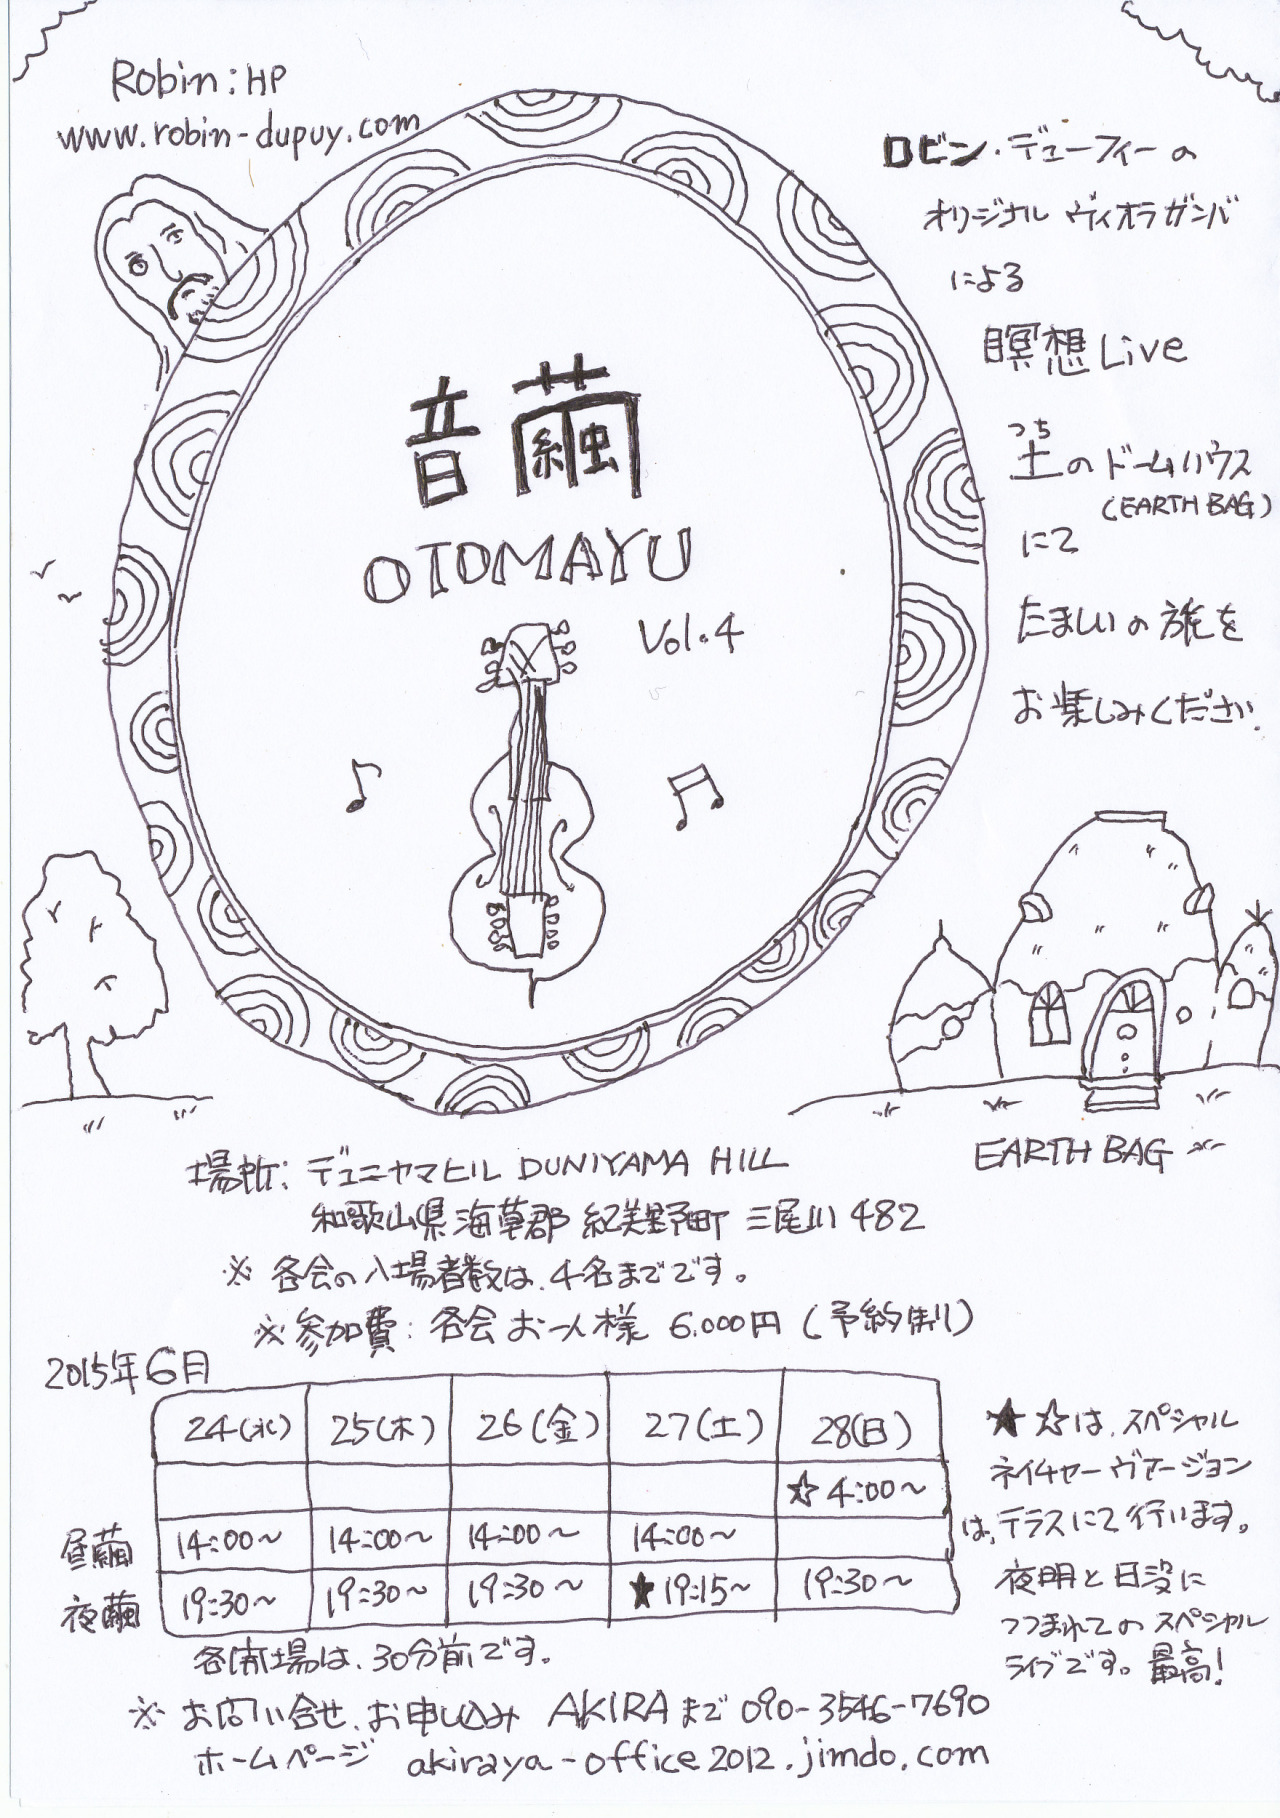 Robin:HP
www.robin-dupuy.com
ロビン・デューフィーの
オリジナル ヴィオラガンバ
による
瞑想Live
つち
土のドームハウス
(EARTH BAG)
にて
たましいの旅を
お楽しみください.
音繭
OTOMAYU
Vol.4
EARTH BAG
場所: デュニヤマヒル DUNIYAMA HILL
和歌山県海草郡 紀美野町 三尾川482
※ 各会の入場者数は、4名までです。
※参加費: 各会 お一人様 6,000円 (予約制)
2015年6月
24(水) 25(木) 26(金) 27(土) 28(日)
☆4:00~
昼繭 14:00~ 14:00~ 14:00~ 14:00~
夜繭 19:30~ 19:30~ 19:30~ ★19:15~ 19:30~
★☆は、スペシャル
ネイチャーヴァージョン
は、テラスにて行います。
夜明と日没に
つつまれてのスペシャル
ライブです。最高!
各開場は、30分前です。
※ お問い合せ、お申し込み AKIRAまで 090-3546-7690
ホームページ akiraya-office2012.jimdo.com